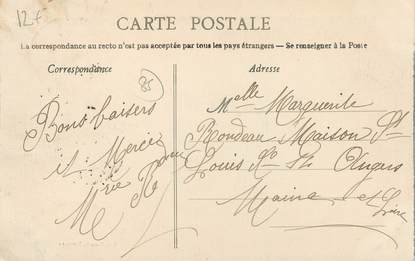 12f
CARTE POSTALE
La correspondance au recto n'est pas acceptée par tous les pays étrangers — Se renseigner à la Poste
Correspondance
Adresse
85
Bons baisers
et Merci
Melle Marguerite
Rondeau Maison St
Louis Angers
Maine et Loire